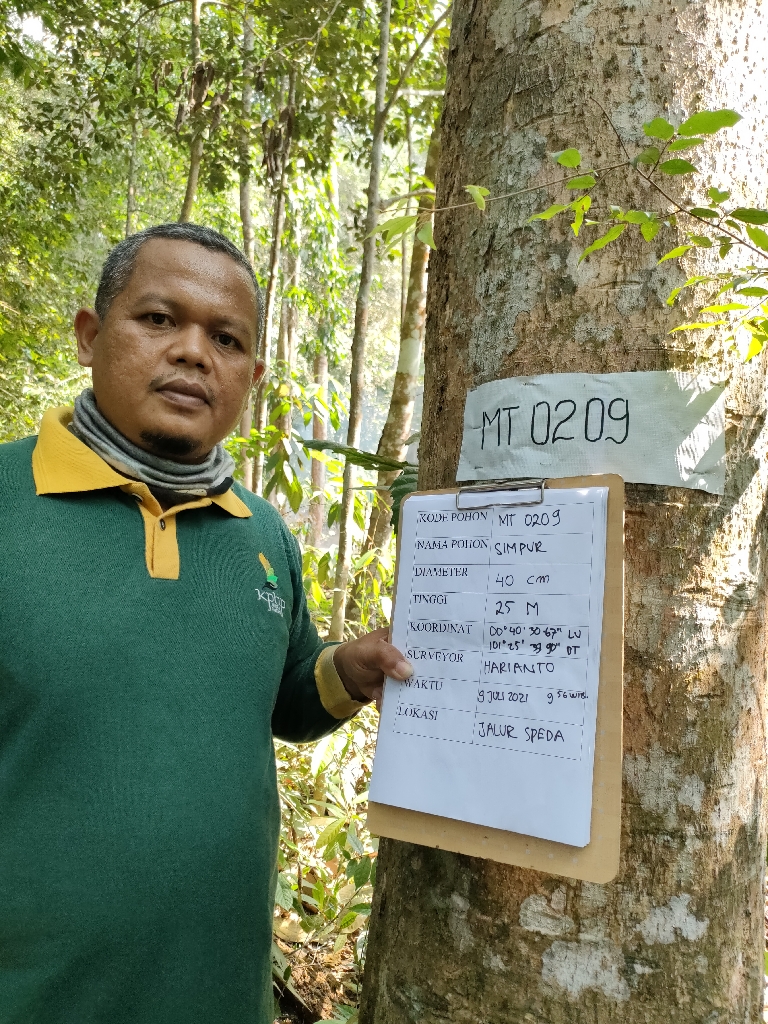 MT 0209
KODE POHON MT 0209
NAMA POHON SIMPUR
DIAMETER 40 cm
TINGGI 25 M
KOORDINAT 00° 40' 30.67" LU
101° 25' 39.90" BT
SURVEYOR HARIANTO
WAKTU 9 JULI 2021 9 56 WIB.
LOKASI JALUR SPEDA
kphp